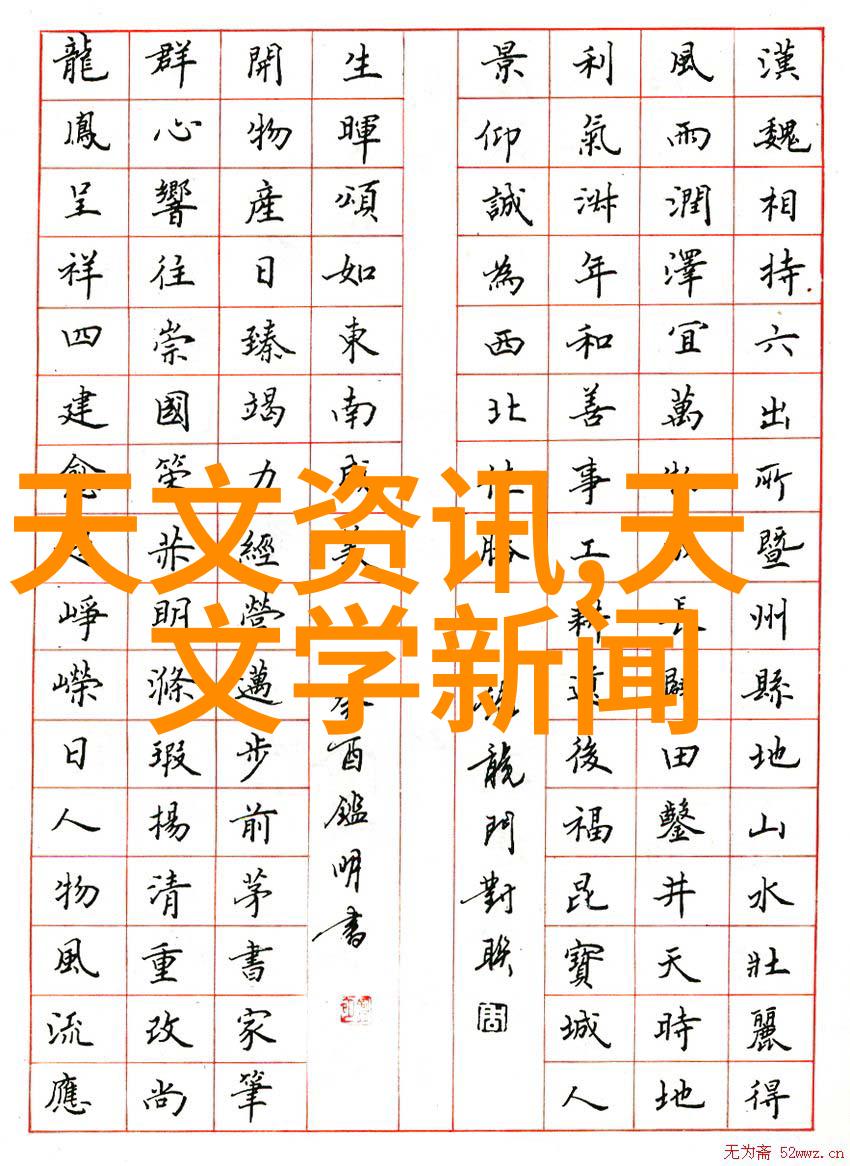 漢魏相持六出所暨州縣地山水壯麗得
風雨潤澤宜萬長田鑿井天時地
利氣年和善事工耕後福昆寶城人
景仰誠為西北勝
龍門對聯
生暉頌如東南
酉鑑明書
開物產日臻竭力經營邁步前茅書家筆
群心響往崇國策明滌瑕揚清重改尚
龍鳳呈祥四建愈崢嶸日人物風流應
天文资讯,天
文学新闻
无为斋 52wwz.cn